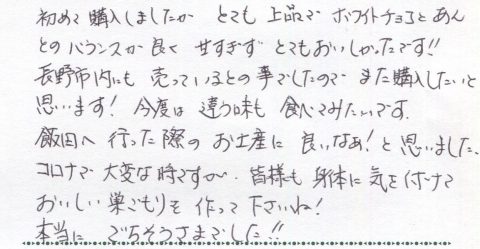 初めて購入しましたが とても 上品で ホワイトチョコと あん
との バランスが 良く 甘すぎず とてもおいしかったです!!
長野市内にも 売っているとの事でしたので また購入したいと
思います! 今度は 違う味も 食べてみたいです。
飯田へ 行った際の お土産に 良いなぁ! と 思いました。
コロナで 大変な時ですが、皆様も 身体に 気を付けて
おいしい 巣ごもりを 作って 下さいね!
本当に ごちそうさまでした!!